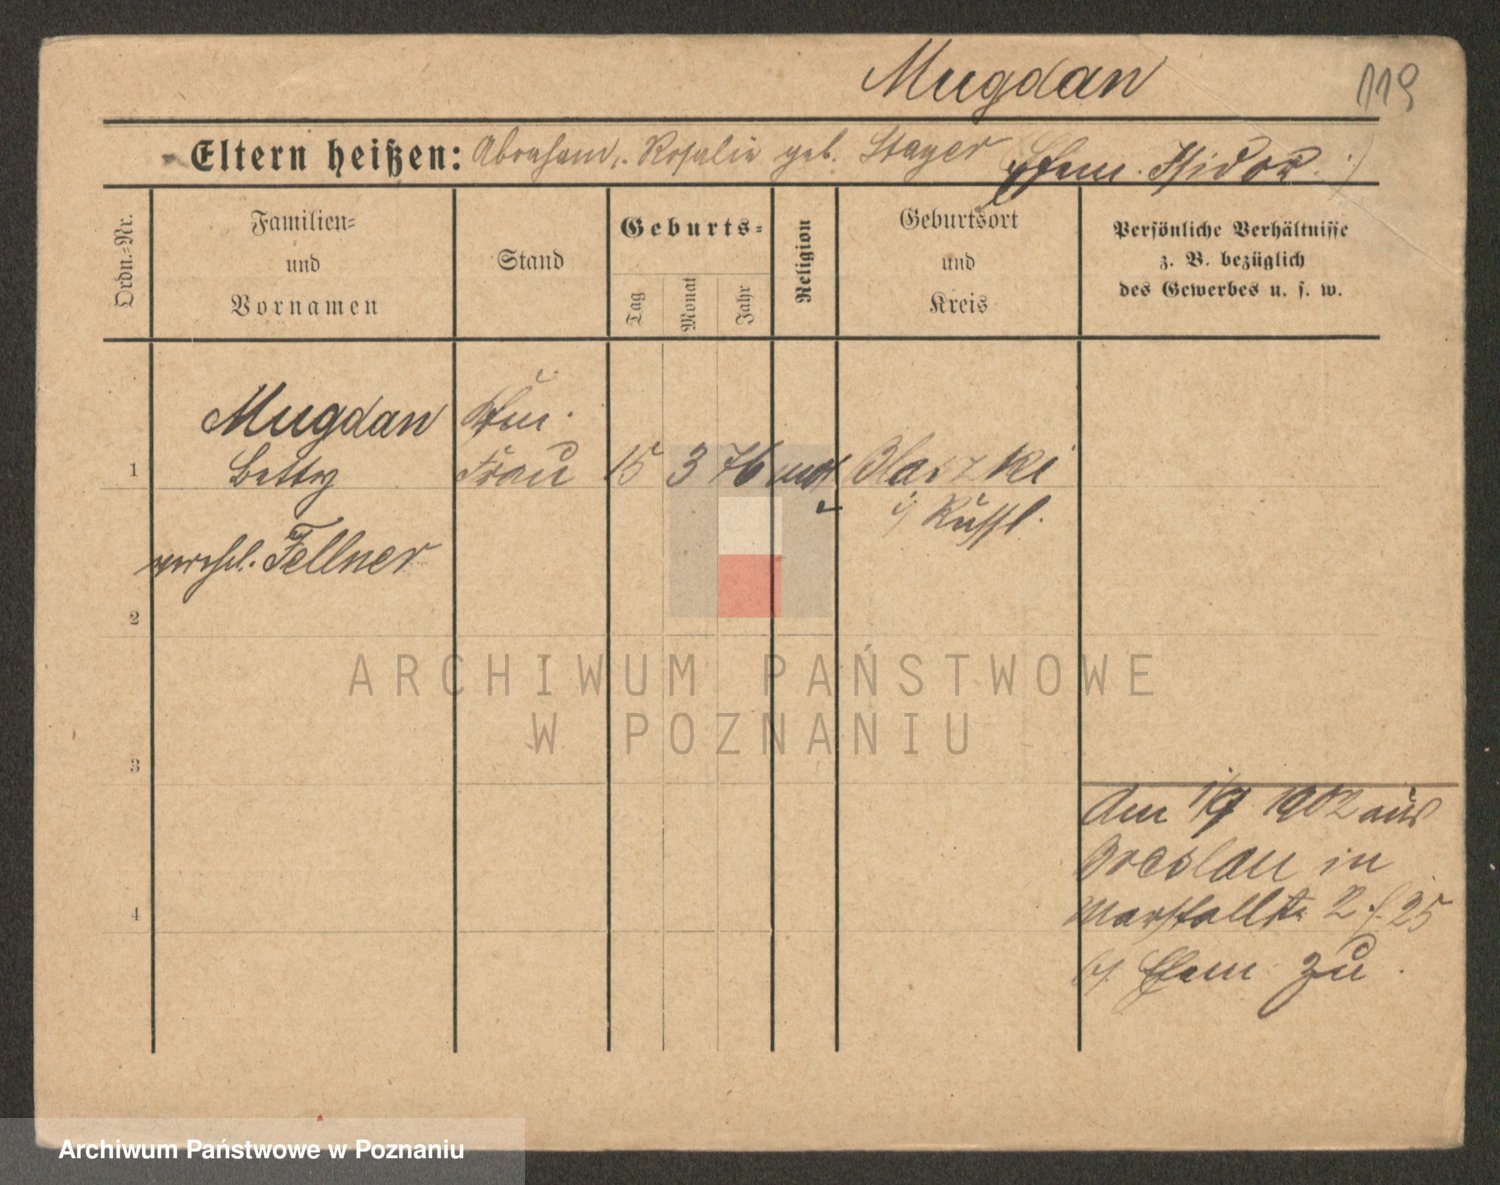 Mugdan
119
Eltern heißen: Abraham, Rosalie geb. Stayer Ehem. Isidor.
Ordn.-Nr.
Familien-
und
Vornamen
Stand
Geburts-
Tag
Monat
Jahr
Religion
Geburtsort
und
Kreis
Persönliche Verhältnisse
z. B. bezüglich
des Gewerbes u. s. w.
Mugdan Kfm.
1 Betty Frau 15 3 76 mos Blaszki
i/ Russl.
verehel. Fellner
2
3
4
Am 1/9 1902 aus
Breslau in
Marstallstr 2 f. 25
b/ Ehem zu.
ARCHIWUM PAŃSTWOWE
W POZNANIU
Archiwum Państwowe w Poznaniu